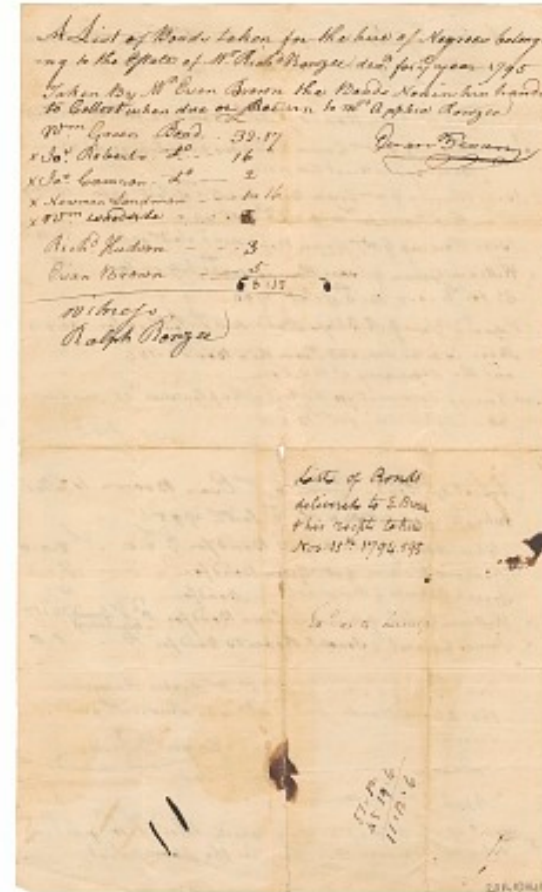 A List of Bonds taken for the hire of Negroes belong
ing to the Estate of Mr Richd Ronzee decd. for ye year 1795
Taken By Mr Evan Brown the Bonds Now in his hands
to Collect when due or Return to Mrs Apphia Ronzee
Wm Green Bond - 39.17
Evan Brown
x Jas. Roberts do - 16
x Jas. Cameron do - 2
x Newman Sandman
x Wm
Richd Hudson - - - 3
Evan Brown - - - 5
Witness
Ralph Ronzee
List of Bonds
delivered to E Brown
& his recipt taken
Nov. 1794
57.12
45.19.6
11.12.6